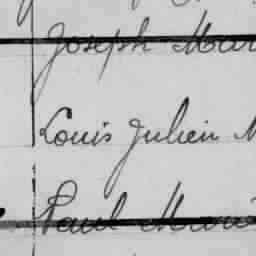 Joseph Mar
Louis Julien M
Paul Mari